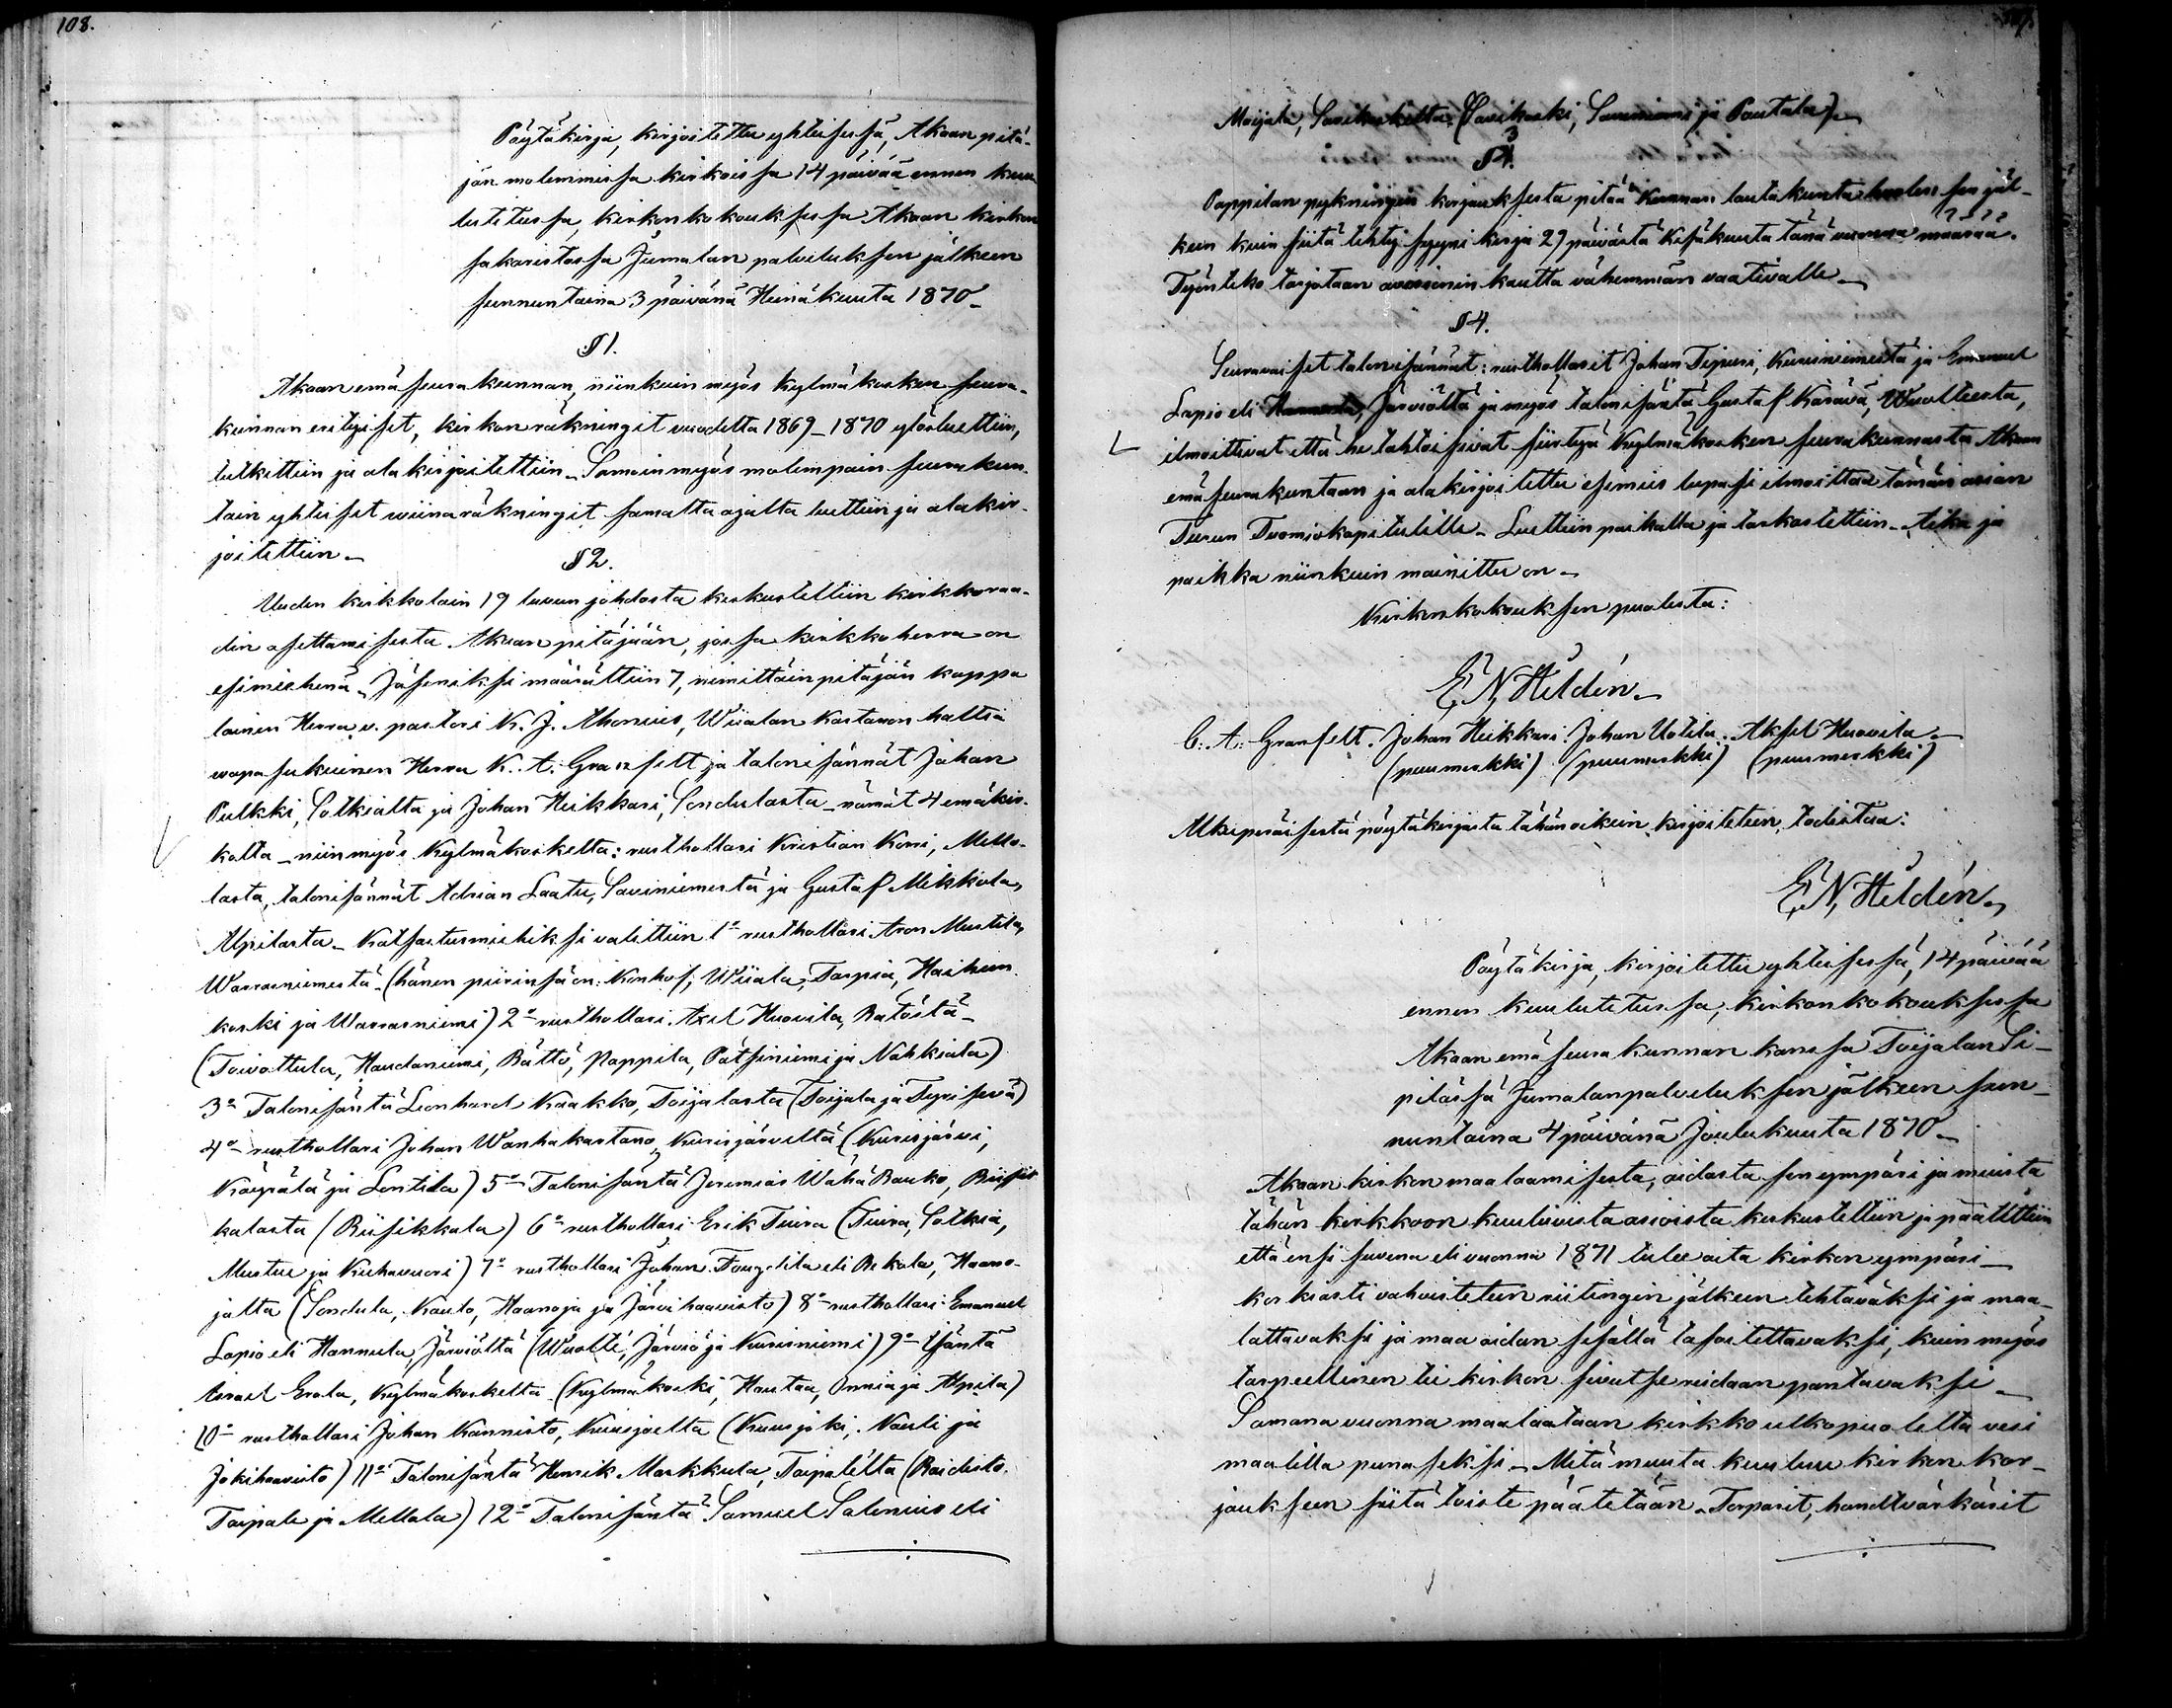 108.
Pöytäkirja, kirjoitettu yhteisessä, Akaan pitä-
jän molemmissa kirkoissa 14 päivää ennen kuu
lutetussa, kirkonkokouksessa Akaan kirkon
sakaristassa Jumalan palveluksen jälkeen
sunnuntaina 3 päivänä Heinäkuuta 1870 –
§ 1.
Akaan emäseurakunnan, niinkuin myös Kylmäkosken seura-
kunnan erityiset, kirkon räkningit vuodelta 1869–1870 ylösluettiin,
tutkittiin ja alakirjoitettiin – Samoin myös molempain seurakun
tain yhteiset viinaräkningit samalta ajalta luettiin ja alakir-
joitettiin –
§ 2.
Uuden kirkkolain 19 luvun johdosta keskusteltiin kirkkoraa-
din asettamisesta Akaan pitäjään, jossa kirkkoherra on
esimiehenä – Jäseniksi määrättiin 7, nimittäin pitäjän kappa
lainen Herra v. pastori K. J. Ahonius, Wiialan kartanon haltia
vapasukuinen Herra K. A. Granfelt ja talonisännät Johan
Pulkki, Sotkialta ja Johan Heikkari, Sondulasta – nämät 4 emäkir-
kolta – niin myös Kylmäkoskelta: rusthollari Kristian Koni, Mello-
lasta, talonisännät Adrian Laatu, Saviniemestä ja Gustaf Mikkola,
Alpilasta – Katsastusmiehiksi valittiin 1o rusthollari Aron Mustila,
Warrasniemestä – (hänen piirinsä on: Konhof, Wiiala, Tarpia, Haihun
koski ja Warrasniemi) 2o rusthollari Axel Huovila, Rätöstä –
(Toivottula, Haudaniemi, Rättö, Pappila, Pätsiniemi ja Nahkiala)
3o Talonisäntä Leonhard Kaakko, Toijalasta (Toijala ja Terisevä)
4o – rusthollari Johan Wanhakartano, Kurisjärveltä (Kurisjärvi,
Käyrälä ja Lontila) 5o – Talonisäntä Jeremias WähäRauko, Riisik
kalasta (Riisikkala) 6o – rusthollari Erik Tuira (Tuira, Sotkia,
Mustue ja Kiukavuori) 7o – rusthollari Johan Fougdila eli Rekola, Haano-
jalta (Sondula, Kauto, Haanoja ja Järvihaavisto) 8o – rusthollari Emanuel
Lapio eli Hannula, Järviöltä (Wuolte, Järviö ja Kurisniemi) 9o – Isäntä
Israel Erola, Kylmäkoskelta – (Kylmäkoski, Hautaa, Onnia ja Alpila)
10o – rusthollari Johan Kannisto, Kuusjoelta (Kuusjoki, Nauli ja
Jokihaavisto) 11o Talonisäntä Henrik Markkula, Taipalelta (Raidisto
Taipale ja Mellola) 12o Talonisäntä Samuel Salonius eli
Maijala, Savikoskelta – (Savikoski, Saviniemi ja Pautala) –
§ 3.
Pappilan pykningin korjauksesta pitää Kunnan lautakunta huolen sen jäl-
keen kuin siitä tehty syynikirja 29 päivästä Kesäkuuta tänä vuonna määrää.
Työnteko tarjotaan auxionin kautta vähemmän vaativalle –
§ 4.
Seuraavaiset talonisännät: rusthollarit Johan Tipuri, Kurisniemestä ja Emanuel
Lapio eli Hannula, Järviöltä ja myös talonisäntä Gustaf Kärävä, Wuolteesta,
ilmoittivat että he tahtoisivat siirtyä Kylmäkosken seurakunnasta Akaan
emäseurakuntaan ja alakirjoitettu esimies lupasi ilmoittaa tämän asian
Turun Tuomiokapitulille – Luettiin paikalla ja tarkastettiin – Aika ja
paikka niinkuin mainittu on –
Kirkonkokouksen puolesta:
E. N. Hildén –
C. A. Granfelt. Johan Heikkari. Johan Uotila. Aksel Huovila –
(puumerkki) (puumerkki) (puumerkki)
Alkuperäisestä pöytäkirjasta tähän oikein kirjoitetuen, todistaa:
E. N. Hildén –
Pöytäkirja, kirjoitettu yhteisessä, 14 päivää
ennen kuulutetussa, kirkonkokouksessa
Akaan emäseurakunnan kanssa Toijalan Si-
pilässä Jumalanpalveluksen jälkeen sun-
nuntaina 4 päivänä Joulukuuta 1870 –
Akaan kirkon maalaamisesta, aidasta sen ympäri ja muista
tähän kirkkoon kuuluvista asioista keskusteltiin ja päätettiin
että ensi suvena eli vuonna 1871 tulee aita kirkon ympäri –
korkiasti vahvistetun riitingin jälkeen tehtäväksi ja maa-
lattavaksi ja maa aidan sisällä tasoitettavaksi, kuin myös
tarpeellinen tie kirkon sivutse reidaan pantavaksi –
Samana vuonna maalataan kirkko ulkopuolelta vesi
maalilla punaseksi – Mitä muuta kuuluu kirkon kor-
jaukseen siitä toiste päätetään – Torparit, handtvärkärit